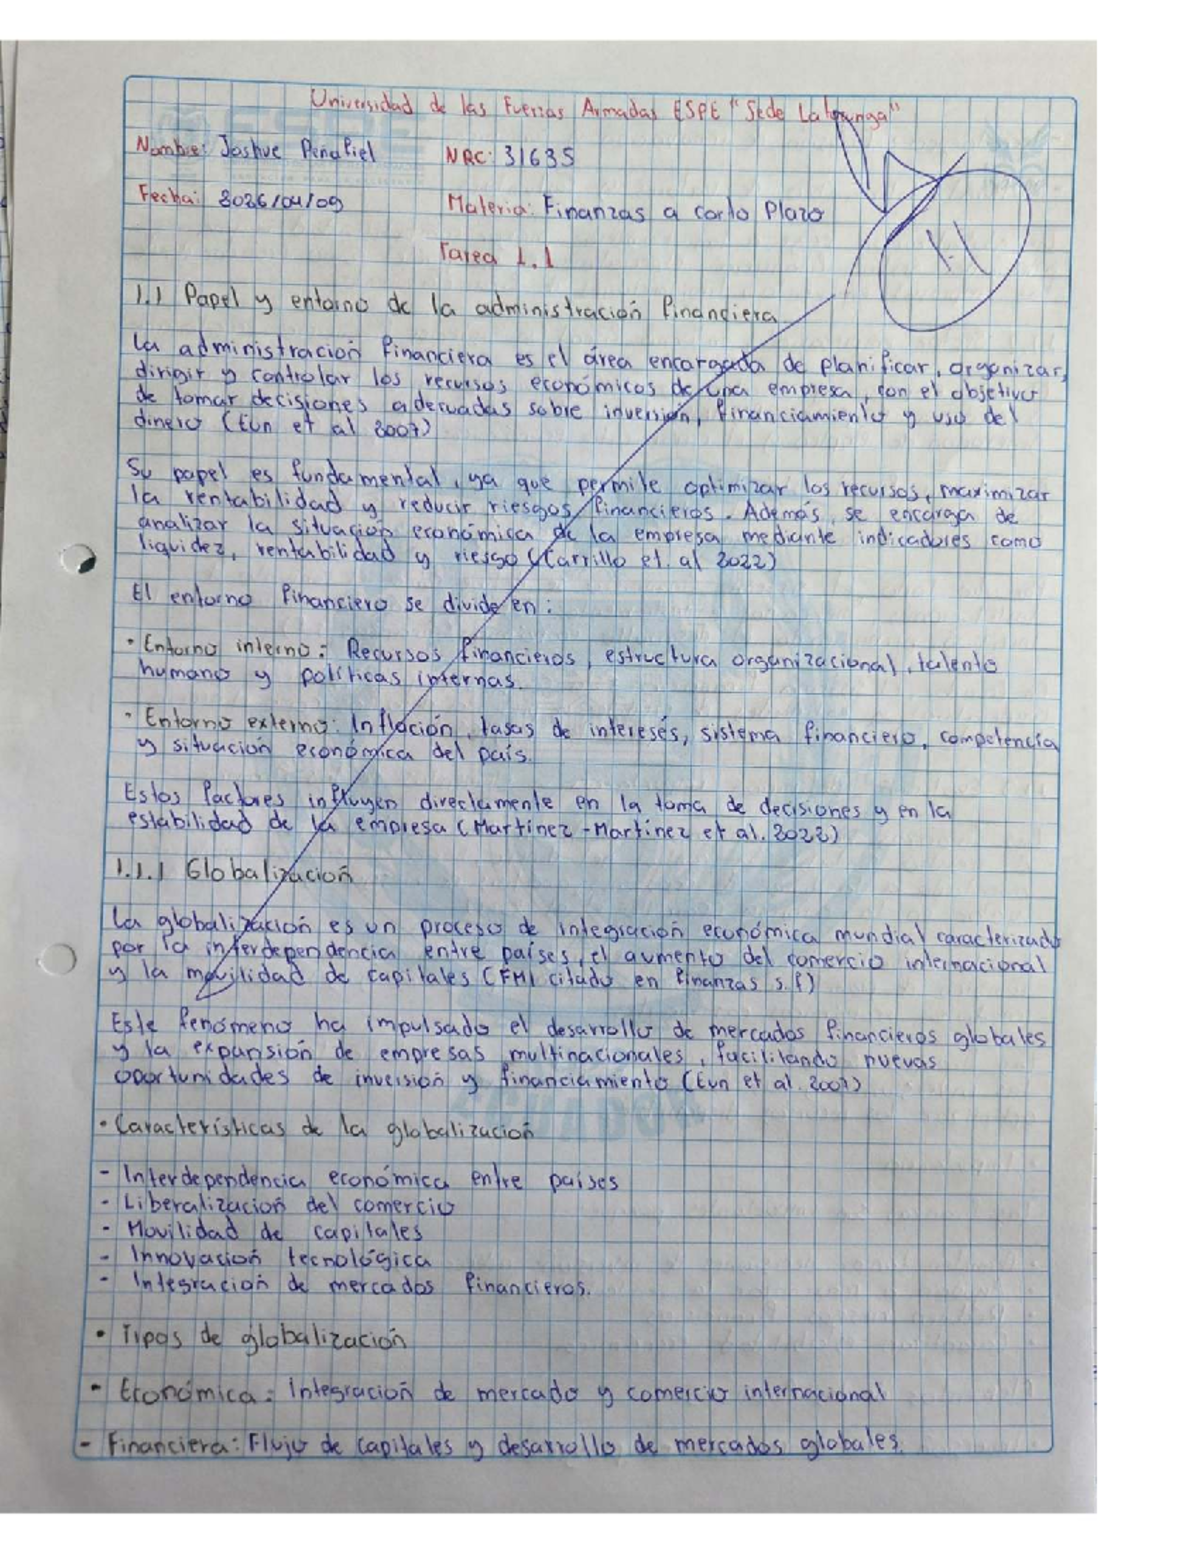 Universidad de las Fuerzas Armadas ESPE "Sede Latacunga"
Nombre: Joshue Peñafiel NRC: 31635
Fecha: 2026/04/09 Materia: Finanzas a corto Plazo
Tarea 1.1
1.1 Papel y entorno de la administración financiera
La administración financiera es el área encargada de planificar, organizar,
dirigir y controlar los recursos económicos de una empresa, con el objetivo
de tomar decisiones adecuadas sobre inversión, financiamiento y uso del
dinero (Eun et al 2007)
Su papel es fundamental, ya que permite optimizar los recursos, maximizar
la rentabilidad y reducir riesgos financieros. Además, se encarga de
analizar la situación económica de la empresa mediante indicadores como
liquidez, rentabilidad y riesgo (Carrillo et. al 2022)
El entorno financiero se divide en:
• Entorno interno: Recursos financieros, estructura organizacional, talento
humano y políticas internas.
• Entorno externo: Inflación, tasas de intereses, sistema financiero, competencia
y situación económica del país.
Estos factores influyen directamente en la toma de decisiones y en la
estabilidad de la empresa (Martínez-Martínez et al. 2022)
1.1.1 Globalización
La globalización es un proceso de integración económica mundial caracterizado
por la interdependencia entre países, el aumento del comercio internacional
y la movilidad de capitales (FMI citado en finanzas s.f)
Este fenómeno ha impulsado el desarrollo de mercados financieros globales
y la expansión de empresas multinacionales, facilitando nuevas
oportunidades de inversión y financiamiento (Eun et al. 2007)
• Características de la globalización
- Interdependencia económica entre países
- Liberalización del comercio
- Movilidad de capitales
- Innovación tecnológica
- Integración de mercados financieros.
• Tipos de globalización
- Económica: Integración de mercado y comercio internacional
- Financiera: Flujo de capitales y desarrollo de mercados globales.